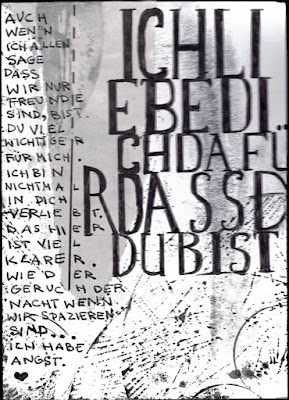 AUCH
WENN
ICH ALLEN
SAGE
DASS
WIR NUR
FREUNDE
SIND, BIST
DU VIEL
WICHTIGER
FÜR MICH.
ICH BIN
NICHTMAL
IN DICH
VERLIEBT.
DAS HIER
IST VIEL
KLARER.
WIE DER
GERUCH DER
NACHT WENN
WIR SPAZIEREN
SIND...
ICH HABE
ANGST.
ICHLI
EBEDI
CHDAFÜ
RDASSD
DUBIST